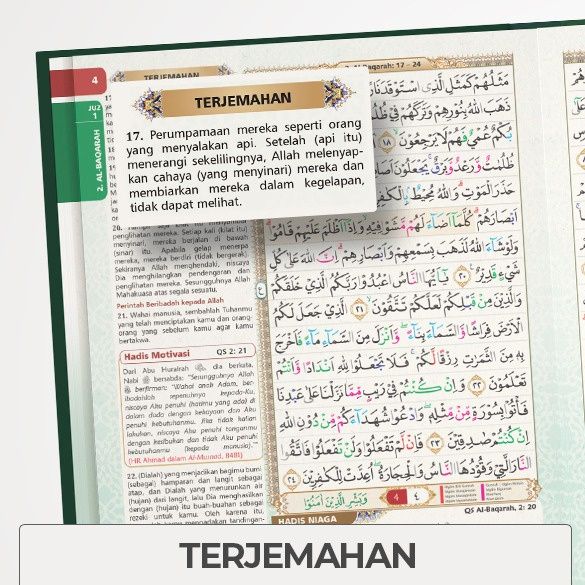 4
TERJEMAHAN
2. Al-Baqarah: 17 – 24
JUZ
1
2. AL-BAQARAH
TERJEMAHAN
17. Perumpamaan mereka seperti orang
yang menyalakan api. Setelah (api itu)
menerangi sekelilingnya, Allah melenyap-
kan cahaya (yang menyinari) mereka dan
membiarkan mereka dalam kegelapan,
tidak dapat melihat.
penglihatan mereka. Setiap kali (kilat itu)
menyinari, mereka berjalan di bawah
(sinar) itu. Apabila gelap menerpa
mereka, mereka berdiri (tidak bergerak).
Sekiranya Allah menghendaki, niscaya
Dia menghilangkan pendengaran dan
penglihatan mereka. Sesungguhnya Allah
Mahakuasa atas segala sesuatu.
Perintah Beribadah kepada Allah
21. Wahai manusia, sembahlah Tuhanmu
yang telah menciptakan kamu dan orang-
orang yang sebelum kamu agar kamu
bertakwa.
Hadis Motivasi QS 2: 21
Dari Abu Hurairah ؓ, dia berkata,
Nabi ﷺ bersabda: "Sesungguhnya Allah
ﷻ berfirman: 'Wahai anak Adam, ber-
ibadahlah sepenuhnya kepada-Ku,
niscaya Aku penuhi (hatimu yang ada) di
dalam dada dengan kekayaan dan Aku
penuhi kebutuhanmu. Jika tidak kalian
lakukan, niscaya Aku penuhi tanganmu
dengan kesibukan dan tidak Aku penuhi
kebutuhanmu (kepada manusia)."
(HR Ahmad dalam Al-Musnad, 8481)
22. (Dialah) yang menjadikan bagimu bumi
(sebagai) hamparan dan langit sebagai
atap, dan Dialah yang menurunkan air
(hujan) dari langit, lalu Dia menghasilkan
dengan (hujan) itu buah-buahan sebagai
rezeki untuk kamu. Oleh karena itu,
مَثَلُهُمْ كَمَثَلِ الَّذِى اسْتَوْقَدَ نَارًا
ذَهَبَ اللّٰهُ بِنُوْرِهِمْ وَتَرَكَهُمْ فِيْ
بُكْمٌ عُمْيٌ فَهُمْ لَا يَرْجِعُوْنَ ١٨
ظُلُمٰتٌ وَّرَعْدٌ وَّبَرْقٌ يَجْعَلُوْنَ
حَذَرَ الْمَوْتِ وَاللّٰهُ مُحِيْطٌ
اَبْصَارَهُمْ كُلَّمَآ اَضَاۤءَ لَهُمْ مَّشَوْا فِيْهِ وَاِذَآ اَظْلَمَ عَلَيْهِمْ قَامُوْا
وَلَوْ شَاۤءَ اللّٰهُ لَذَهَبَ بِسَمْعِهِمْ وَاَبْصَارِهِمْ اِنَّ اللّٰهَ عَلٰى كُلِّ
شَيْءٍ قَدِيْرٌ ٢٠ يٰٓاَيُّهَا النَّاسُ اعْبُدُوْا رَبَّكُمُ الَّذِيْ خَلَقَكُمْ
وَالَّذِيْنَ مِنْ قَبْلِكُمْ لَعَلَّكُمْ تَتَّقُوْنَ ٢١ الَّذِيْ جَعَلَ لَكُمُ
الْاَرْضَ فِرَاشًا وَّالسَّمَاۤءَ بِنَاۤءً وَّاَنْزَلَ مِنَ السَّمَاۤءِ مَاۤءً فَاَخْرَجَ
بِهٖ مِنَ الثَّمَرٰتِ رِزْقًا لَّكُمْ فَلَا تَجْعَلُوْا لِلّٰهِ اَنْدَادًا وَّاَنْتُمْ
تَعْلَمُوْنَ ٢٢ وَاِنْ كُنْتُمْ فِيْ رَيْبٍ مِّمَّا نَزَّلْنَا عَلٰى عَبْدِنَا
فَأْتُوْا بِسُوْرَةٍ مِّنْ مِّثْلِهٖ وَادْعُوْا شُهَدَاۤءَكُمْ مِّنْ دُوْنِ اللّٰهِ
اِنْ كُنْتُمْ صٰدِقِيْنَ ٢٣ فَاِنْ لَّمْ تَفْعَلُوْا وَلَنْ تَفْعَلُوْا فَاتَّقُوا
النَّارَ الَّتِيْ وَقُوْدُهَا النَّاسُ وَالْحِجَارَةُ اُعِدَّتْ لِلْكٰفِرِيْنَ ٢٤
وَبَشِّرِ الَّذِيْنَ اٰمَنُوْا
4 ٤
HADIS NIAGA
QS Al-Baqarah, 2: 20
TERJEMAHAN